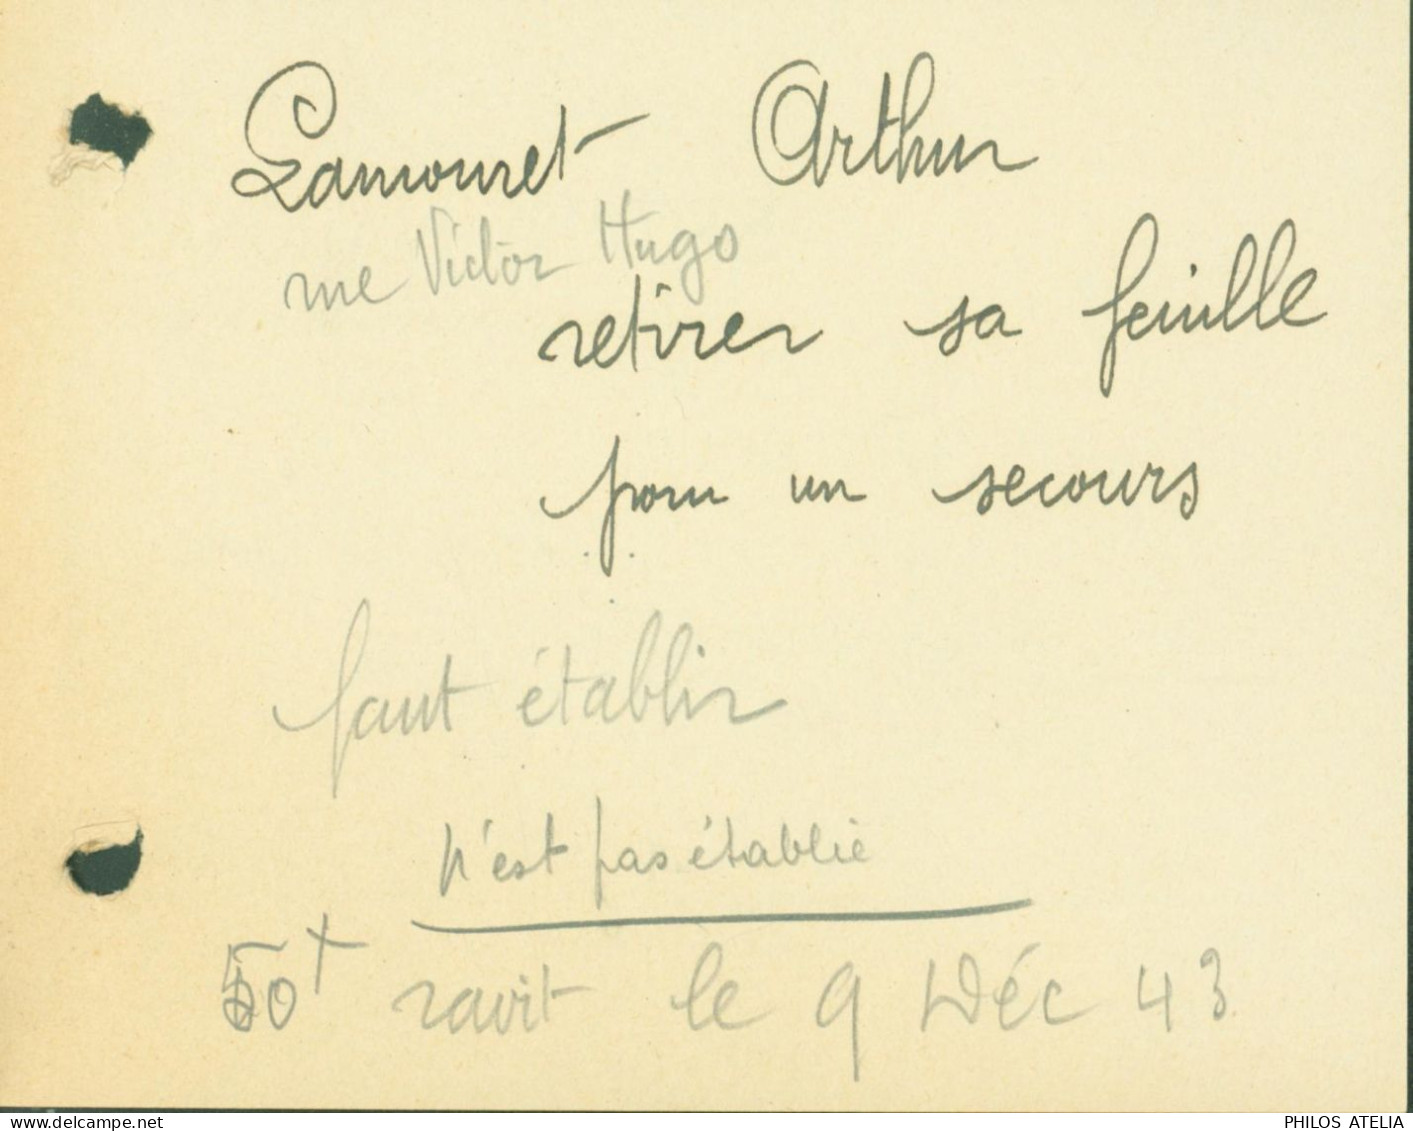 Lamouret Arthur
rue Victor Hugo
retirer sa feuille
pour un secours
faut établir
n'est pas établie
50 ravit le 9 Déc 43
PHILOS ATELIA